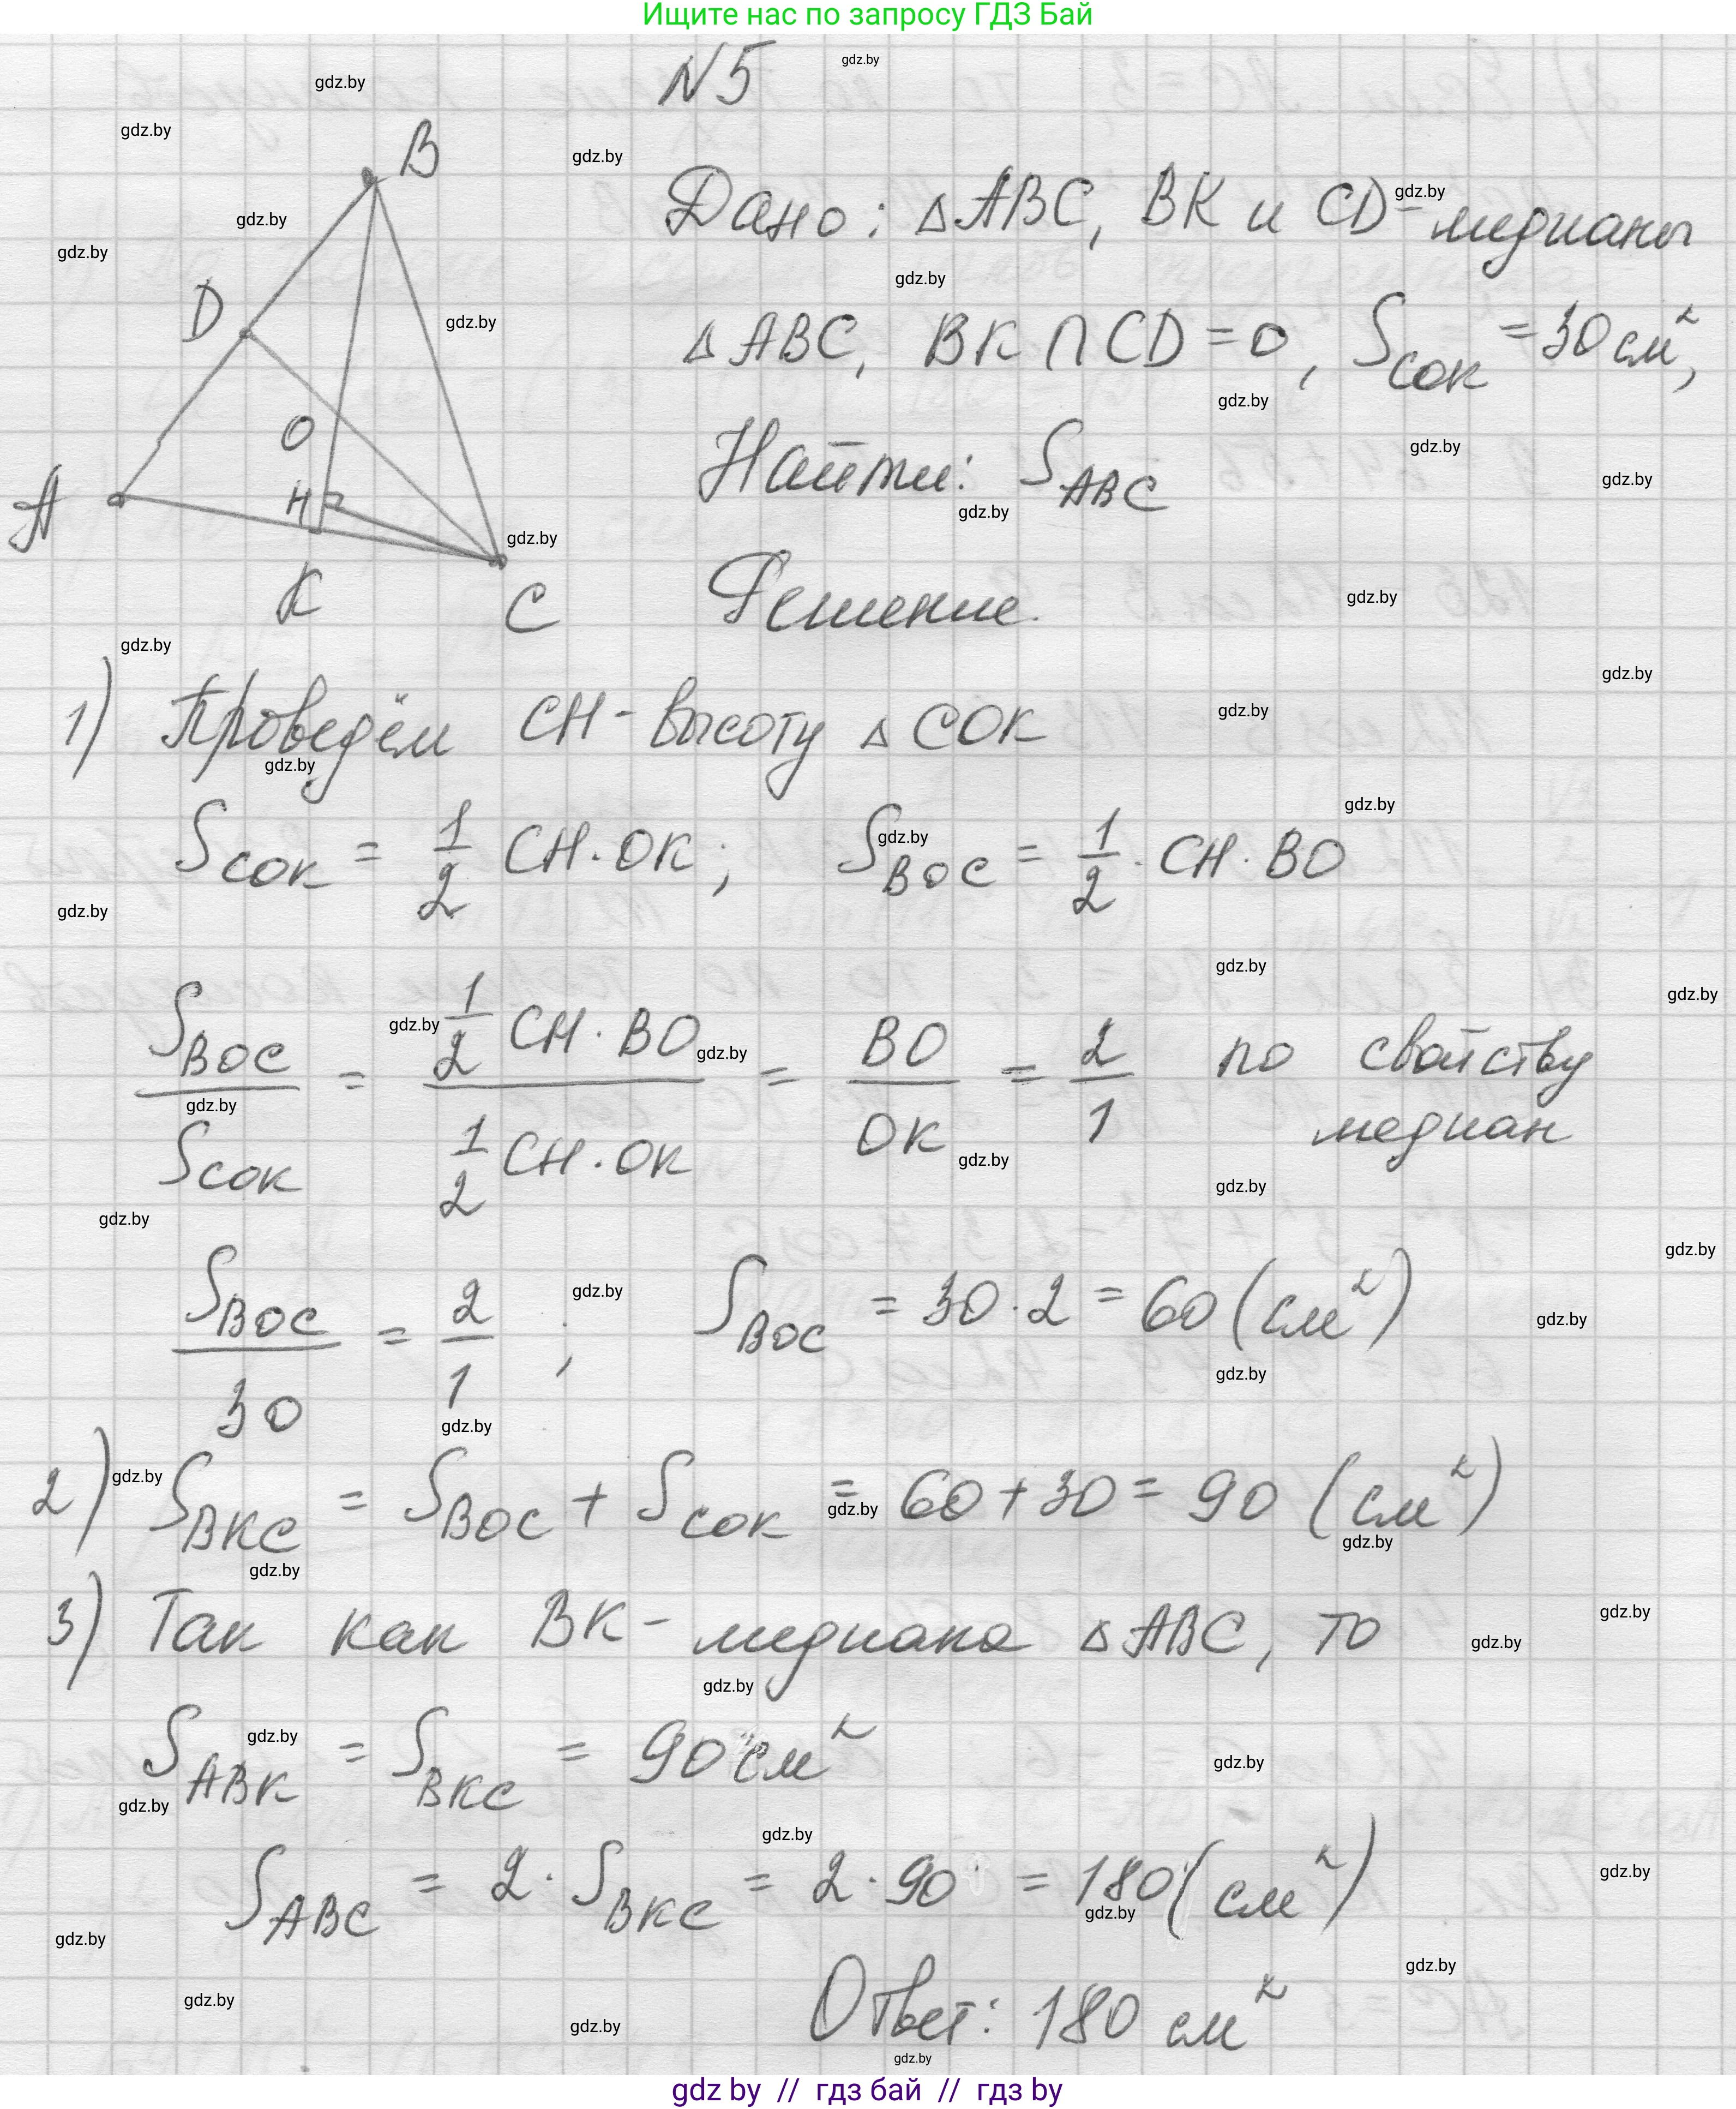 Ищите нас по запросу ГДЗ Бай
N5
B
D
O
A
H
K
C
Дано: △ABC, BK и CD - медианы
△ABC, BK ∩ CD = O, S_COK = 30 см²,
Найти: S_ABC
Решение.
1) Проведём CH - высоту △COK
S_COK = 1/2 CH · OK; S_BOC = 1/2 · CH · BO
S_BOC / S_COK = (1/2 CH · BO) / (1/2 CH · OK) = BO / OK = 2/1 по свойству
медиан
S_BOC / 30 = 2/1; S_BOC = 30 · 2 = 60 (см²)
2) S_BKC = S_BOC + S_COK = 60 + 30 = 90 (см²)
3) Так как BK - медиана △ABC, то
S_ABK = S_BKC = 90 см²
S_ABC = 2 · S_BKC = 2 · 90 = 180 (см²)
Ответ: 180 см²
gdz.by
gdz by // гдз бай // гдз by